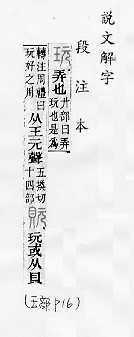 說文解字
段注本
玩 弄也 廾部曰弄玩也是爲
轉注周禮曰玩好之用 从王元聲 五換切十四部 貦 玩或从貝
(玉部 p16)